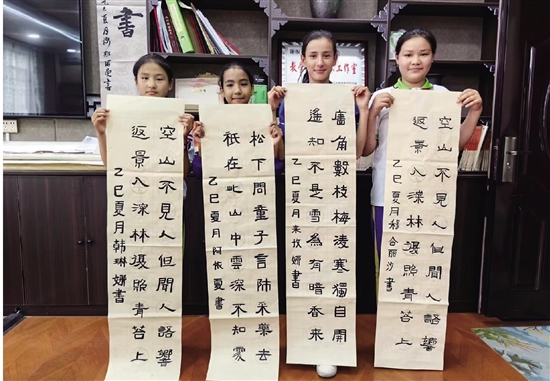 書
工作室
空山不見人但聞人語響
返景入深林復照青苔上
乙巳夏月韩琳妍書
松下問童子言師采藥去
祇在此山中雲深不知處
乙巳夏月阿依夏書
牆角數枝梅淩寒獨自開
遥知不是雪為有暗香来
乙巳夏月書
空山不見人但聞人語響
返景入深林復照青苔上
乙巳夏月書